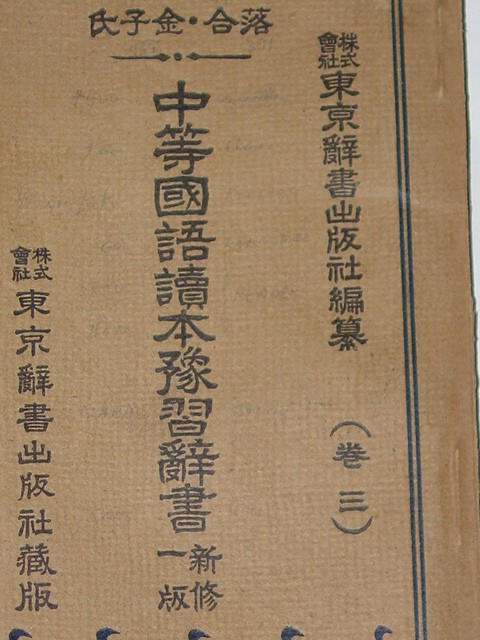 落合・金子氏
株式會社東京辭書出版社編纂
(卷三)
中等國語讀本豫習辭書
新修一版
株式會社東京辭書出版社藏版